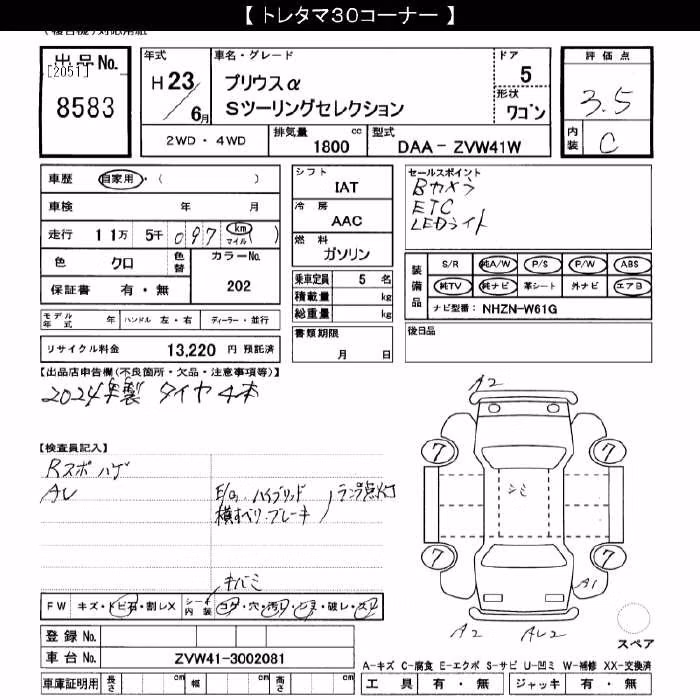 【 トレタマ30コーナー 】
出品No.
[2051]
8583
年式
H 23
6月
車名・グレード
プリウスα
Sツーリングセレクション
ドア
5
形状
ワゴン
評価点
3.5
内装
C
2WD ・ 4WD
排気量
1800 cc
型式
DAA - ZVW41W
車歴 自家用 ・( )
車検 年 月
走行 11万 5千 097 km マイル )
色 クロ 色替
カラーNo. 202
保証書 有 ・ 無
シフト
IAT
冷房
AAC
燃料
ガソリン
乗車定員 5 名
積載量 kg
総重量 kg
書類期限
月 日
セールスポイント
Bカメラ
ETC
LEDライト
装備品
S/R 純A/W P/S P/W ABS
純TV 純ナビ 革シート 外ナビ エアB
ナビ型番: NHZN-W61G
後日品
モデル年式 年 ハンドル 左・右 ディーラー・並行
リサイクル料金 13,220 円 預託済
【出品店申告欄(不良箇所・欠品・注意事項等)】
2024年製 タイヤ4本
【検査員記入】
Rスポ ハゲ
AU
E/G・ハイブリッド
横すべり・ブレーキ
ランプ点灯
キバミ
FW キズ・トビ石・割レX
シート内装 コゲ・穴・汚レ・シミ・破レ・スレ
登録No.
車台No. ZVW41-3002081
車庫証明用 長さ cm 幅 cm 高さ cm
A2
7
7
シミ
7
7
A1
A2
AU2
スペア
A-キズ C-腐食 E-エクボ S-サビ U-凹ミ W-補修 XX-交換済
工具 有 ・ 無 ジャッキ 有 ・ 無